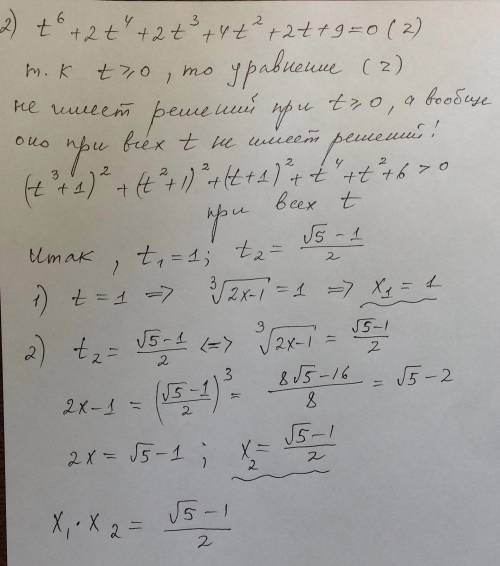 2) t⁶ + 2t⁴ + 2t³ + 4t² + 2t + 9 = 0 (2)
т. к t ⩾ 0, то уравнение (2)
не имеет решений при t ⩾ 0, а вообще
оно при всех t не имеет решений!
(t³+1)² + (t²+1)² + (t+1)² + t⁴ + t² + 6 > 0
при всех t
Итак, t₁ = 1; t₂ = (√5 - 1)/2
1) t = 1 => ∛(2x-1) = 1 => x₁ = 1
2) t₂ = (√5 - 1)/2 <=> ∛(2x-1) = (√5-1)/2
2x-1 = ((√5-1)/2)³ = (8√5-16)/8 = √5-2
2x = √5-1; x₂ = (√5-1)/2
x₁ · x₂ = (√5 - 1)/2